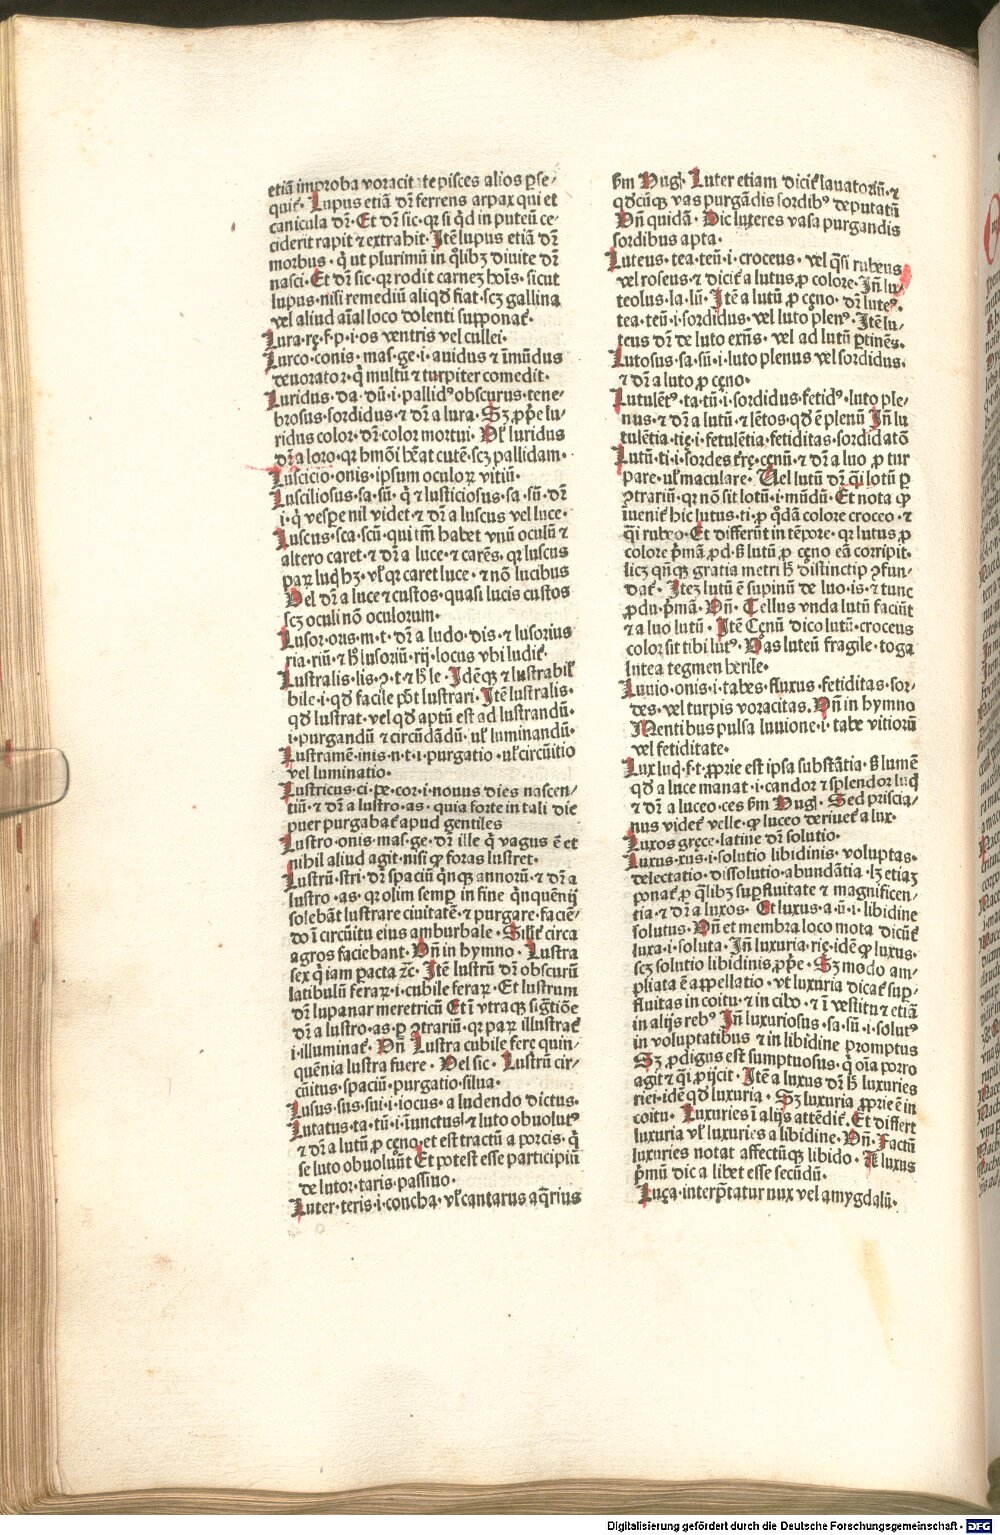 etiā improba voracitate pisces alios ꝑse⸗
quit᷑. Lupus etiā dr̄ ferrens arpax qui et
canicula dr̄. Et dr̄ sic. qr si qd̄ in puteū ce⸗
ciderit rapit ⁊ extrahit. Itē lupus etiā dr̄
morbus. qͥ ut plurimū in qͥlibꝫ diuite dr̄
nasci. Et dr̄ sic. qr rodit carneꝫ hoīs. sicut
lupus. nisi remediū aliqd̄ fiat. scꝫ gallina
vel aliud aīal loco dolenti supponat᷑.
Lura. rę. f. p. i. os ventris vel cullei.
Lurco. conis. mas. ge. i. auidus ⁊ īmūdus
deuorator. qͥ multū ⁊ turpiter comedit.
Luridus. da. dū. i. pallidꝰ obscurus. tene⸗
brosus. sordidus. ⁊ dr̄ a lura. Sꝫ ꝓpͥe lu⸗
ridus color. dr̄ color mortui. Vl̓ luridus
dr̄ a loro. qr hmōi hēat cutē. scꝫ pallidam.
Luscicio. onis. ipsum oculoꝝ vitiū.
Lusciliosus. sa. sū. qͥ ⁊ lusticiosus. sa. sū. dr̄
i. qͥ vespe nil videt. ⁊ dr̄ a luscus vel luce.
Luscus. sca. scū. qui tm̄ habet vnū oculū ⁊
altero caret. ⁊ dr̄ a luce. ⁊ carēs. qr luscus
paꝝ lucͥ hꝫ. vl̓ qr caret luce. ⁊ nō lucibus
Vel dr̄ a luce ⁊ custos. quasi lucis custos
scꝫ oculi nō oculorum.
Lusor. oris. m. t. dr̄ a ludo. dis. ⁊ lusorius
ria. riū. ⁊ h̓ lusoriū. rij. locus vbi ludit᷑.
Lustralis. lis. ꝯ. t. ⁊ h̓ le. Idēqꝫ ⁊ lustrabil̓
bile. i. qd̄ facile pōt lustrari. Itē lustralis.
qd̄ lustrat. vel qd̄ aptū est ad lustrandū.
i. purgandū ⁊ circūdādū. ul̓ luminandū.
Lustramē. inis. n. t. i. purgatio. ul̓ circūitio
vel luminatio.
Lustricus. ci. pe. cor. i. nouus dies nascen⸗
tiū. ⁊ dr̄ a lustro. as. quia forte in tali die
puer purgabat᷑ apud gentiles
Lustro. onis. mas. ge. dr̄ ille qͥ vagus ē et
nihil aliud agit. nisi qꝫ foras lustret.
Lustrū. stri. dr̄ spaciū qͥnqꝫ annorū. ⁊ dr̄ a
lustro. as. qr olim semꝑ in fine qͥnquēnij
solebāt lustrare ciuitatē. ⁊ purgare. faciē⸗
do ī circūitu eius amburbale. Silit᷑ circa
agros faciebant. Vn̄ in hymno. Lustra
sex qͥ iam ꝑacta ⁊c̄. Itē lustrū dr̄ obscurū
latibulū feraꝝ. i. cubile feraꝝ. Et lustrum
dr̄ lupanar meretricū Et ī vtraqꝫ sigtiōe
dr̄ a lustro. as. ꝑ ꝯtrariū. qr paꝝ illustrat᷑
i. illuminat᷑. Vn̄ Lustra cubile fere quin⸗
quēnia lustra fuere. Vel sic. Lustrū cir⸗
cūitus. spaciū. purgatio. silua.
Lusus. sus. sui. i. iocus. a ludendo dictus.
Lutatus. ta. tū. i. iunctus ⁊ luto obuolutꝰ
⁊ dr̄ a lutū ꝓ cęno. et est tractū a porcis. qͥ
se luto obuoluūt Et potest esse participiū
de lutor. taris. passiuo.
Luter. teris. i. concha. vl̓ cantarus aqͥrius
ẜm Hugͥ. Luter etiam dicit᷑ lauatoriū. ⁊
qd̄cūqꝫ vas purgādis sordibꝰ deputatū
Vn̄ quidā. Dic luteres vasa purgandis
sordibus apta.
Luteus. tea. teū. i. croceus. vel qͣsi rubeus
vel roseus. ⁊ dicit᷑ a lutus ꝓ colore. Jn̄ lu⸗
teolus. la. lū. Itē a lutū ꝓ cęno. dr̄ luteꝰ.
tea. teū. i. sordidus. vel luto plenꝰ. Itē lu⸗
teus dr̄ de luto exn̄s. vel ad lutū ꝑtinēs.
Lutosus. sa. sū. i. luto plenus vel sordidus.
⁊ dr̄ a luto ꝓ cęno.
Lutulētꝰ. ta. tū. i. sordidus. fetidꝰ. luto ple⸗
nus. ⁊ dr̄ a lutū. ⁊ lētos. qd̄ ē plenū Jn̄ lu
tulētia. tię. i. fetulētia. fetiditas. sordidatō
Lutū. ti. i. sordes tr̄ę. cęnū. ⁊ dr̄ a luo ꝓ tur
pare. ul̓ maculare. Vel lutū dr̄ qͣsi lotū ꝑ
ꝯtrariū. qr nō sit lotū. i. mūdū. Et nota qꝫ
īuenit᷑ hic lutus. ti. ꝓ qͥdā colore croceo. ⁊
qͣsi rubeo. Et differūt in tēpore. qr lutus ꝓ
colore pͥmā ꝓd. ẜ lutū ꝓ cęno eā corripit.
licꝫ qn̄qꝫ gratia metri h̓ distinctio ꝯfun⸗
dat᷑. Iteꝫ lutū ē supinū de luo. is. ⁊ tunc
ꝓdu. pͥmā. Vn̄. Tellus vnda lutū faciūt
⁊ a luo lutū. Itē Cęnū dico lutū. croceus
color sit tibi lutꝰ. Vas luteū fragile. toga
lutea tegmen herile.
Luuio. onis. i. tabes. fluxus. fetiditas. sor⸗
des. vel turpis voracitas. Vn̄ in hymno
Mentibus pulsa luuione. i. tabe vitiorū
vel fetiditate.
Lux lucͥ. f. t. ꝓprie est ipsa substātia. ẜ lumē
qd̄ a luce manat. i. candor ⁊ splendor lucͥ
⁊ dr̄ a luceo. ces ẜm Hugͥ. Sed priscia⸗
nus videt᷑ velle. qꝫ luceo deriuet᷑ a lux.
Luxos gręce. latine dr̄ solutio.
Luxus. xus. i. solutio libidinis. voluptas.
delectatio. dissolutio. abundātia. lꝫ etiaꝫ
ponat᷑ ꝓ qͥlibꝫ suꝑfluitate ⁊ magnificen⸗
tia. ⁊ dr̄ a luxos. Et luxus. a. ū. i. libidine
solutus. Vn̄ et membra loco mota dicūt᷑
luxa. i. soluta. Jn̄ luxuria. rię. idē qꝫ luxus.
scꝫ solutio libidinis ꝓpͥe. Sꝫ modo am⸗
pliata ē appellatio. vt luxuria dicat᷑ suꝑ⸗
fluitas in coitu. ⁊ in cibo. ⁊ ī vestitu ⁊ etiā
in alijs rebꝰ Jn̄ luxuriosus. sa. sū. i. solutꝰ
in voluptatibus ⁊ in libidine promptus
Sꝫ ꝓdigus est sumptuosus. qͥ oīa porro
agit ⁊ qͣsi ꝓijcit. Itē a luxus dr̄ h̓ luxuries
riei. idē qd̄ luxuria. Sꝫ luxuria ꝓprie ē in
coitu. Luxuries ī alijs attēdit᷑. Et differt
luxuria vl̓ luxuries a libidine. Vn̄. Factū
luxuries notat affectūqꝫ libido. A luxus
pͥmū dic a libet esse secūdū.
Luça. interp̄tatur nux vel amygdalū.
Digitalisierung gefördert durch die Deutsche Forschungsgemeinschaft - DFG